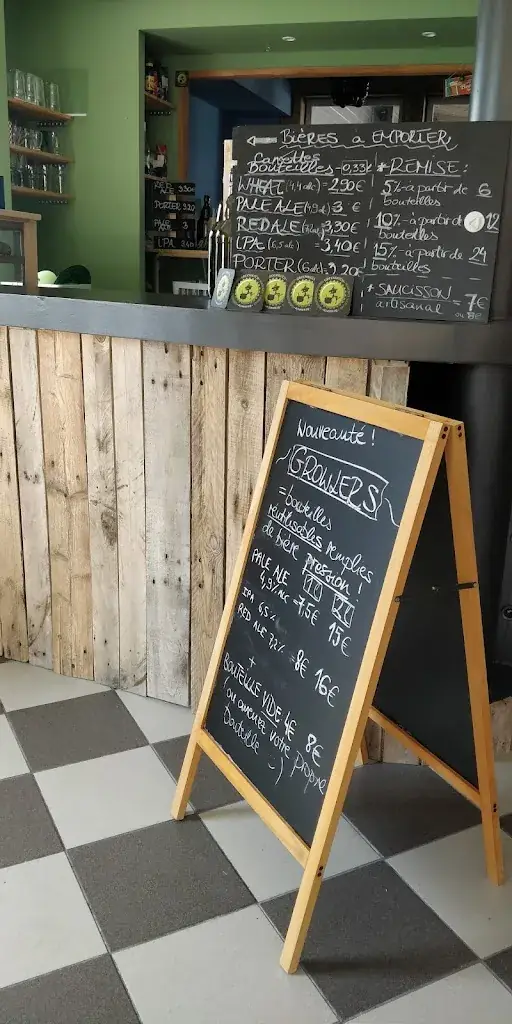 BIÈRES à EMPORTER
Canettes
Bouteilles - 0,33
WHEAT (4,4 alc) = 2,90€
PALE ALE (4,9 alc) 3 €
RED ALE = 3,30€
IPA (6,5 alc) = 3,40€
PORTER (6 alc) = 3,20€
* REMISE:
5% à partir de 6
bouteilles
10% à partir de 12
bouteilles
15% à partir de 24
bouteilles
* SAUCISSON = 7€
artisanal
RED ALE 3,30€
PORTER 3,20
PALE ALE 3
IPA 3,40€
Nouveauté!
GROWLERS
= bouteilles
réutilisables remplies
de bière pression!
1L 2L
PALE ALE
4,9% ALC = 7,5€ 15€
IPA 6,5%
RED ALE 7,2% = 8€ 16€
+
BOUTEILLE VIDE 4€ 8€
(ou amenez votre propre
bouteille :-)